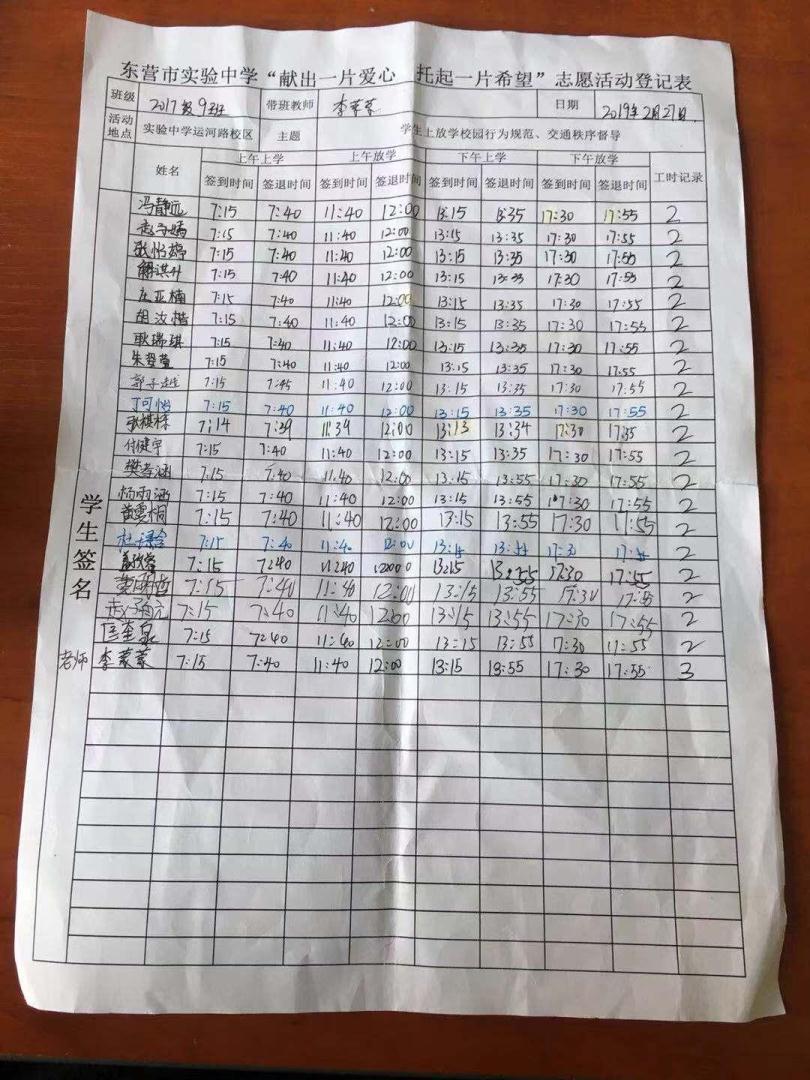 东营市实验中学“献出一片爱心 托起一片希望”志愿活动登记表
班级 2017级9班 带班教师 李蒙蒙 日期 2019年2月27日
活动地点 实验中学运河路校区 主题 学生上放学校园行为规范、交通秩序督导
姓名 上午上学 上午放学 下午上学 下午放学 工时记录
签到时间 签退时间 签到时间 签退时间 签到时间 签退时间 签到时间 签退时间
学生签名
冯静远 7:15 7:40 11:40 12:00 13:15 13:35 17:30 17:55 2
赵子嫣 7:15 7:40 11:40 12:00 13:15 13:35 17:30 17:55 2
张怡婷 7:15 7:40 11:40 12:00 13:15 13:35 17:30 17:55 2
解淇升 7:15 7:40 11:40 12:00 13:15 13:35 17:30 17:55 2
庄亚楠 7:15 7:40 11:40 12:00 13:15 13:35 17:30 17:55 2
胡汝楷 7:15 7:40 11:40 12:00 13:15 13:35 17:30 17:55 2
耿瑞琪 7:15 7:40 11:40 12:00 13:15 13:35 17:30 17:55 2
朱翌萱 7:15 7:40 11:40 12:00 13:15 13:35 17:30 17:55 2
郭子 7:15 7:45 11:40 12:00 13:15 13:35 17:30 17:55 2
丁可怡 7:15 7:40 11:40 12:00 13:15 13:35 17:30 17:55 2
张棋栋 7:14 7:39 11:39 12:00 13:13 13:34 17:30 17:55 2
付健宇 7:15 7:40 11:40 12:00 13:15 13:35 17:30 17:55 2
樊孝涵 7:15 7:40 11:40 12:00 13:15 13:55 17:30 17:55 2
杨雨涵 7:15 7:40 11:40 12:00 13:15 13:55 17:30 17:55 2
黄雯桐 7:15 7:40 11:40 12:00 13:15 13:55 17:30 17:55 2
杜 7:15 7:40 11:40 12:00 2
7:15 7:40 11:40 12:00 13:15 13:55 17:30 17:55 2
7:15 7:40 11:40 12:00 13:15 13:55 17:30 17:55 2
7:15 7:40 11:40 12:00 13:15 13:55 17:30 17:55 2
信奎泉 7:15 7:40 11:40 12:00 13:15 13:55 17:30 17:55 2
老师 李蒙蒙 7:15 7:40 11:40 12:00 13:15 13:55 17:30 17:55 3